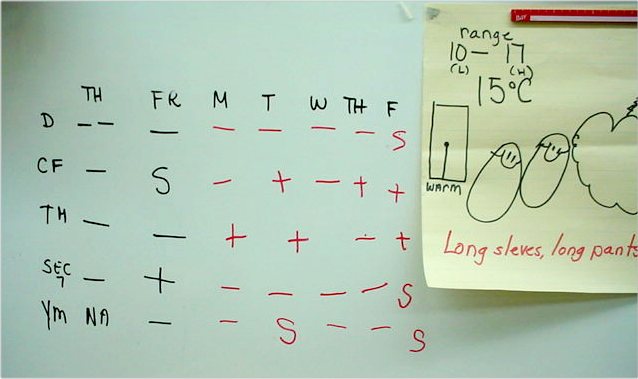 TH FR M T W TH F
D -- — — — — — S
CF — S — + — + +
TH — — + + — +
SEC 7 — + — — — — S
Ym NA — — S — — S
range
10 — 17
(L) (H)
15°C
WARM
Long sleves, long pants